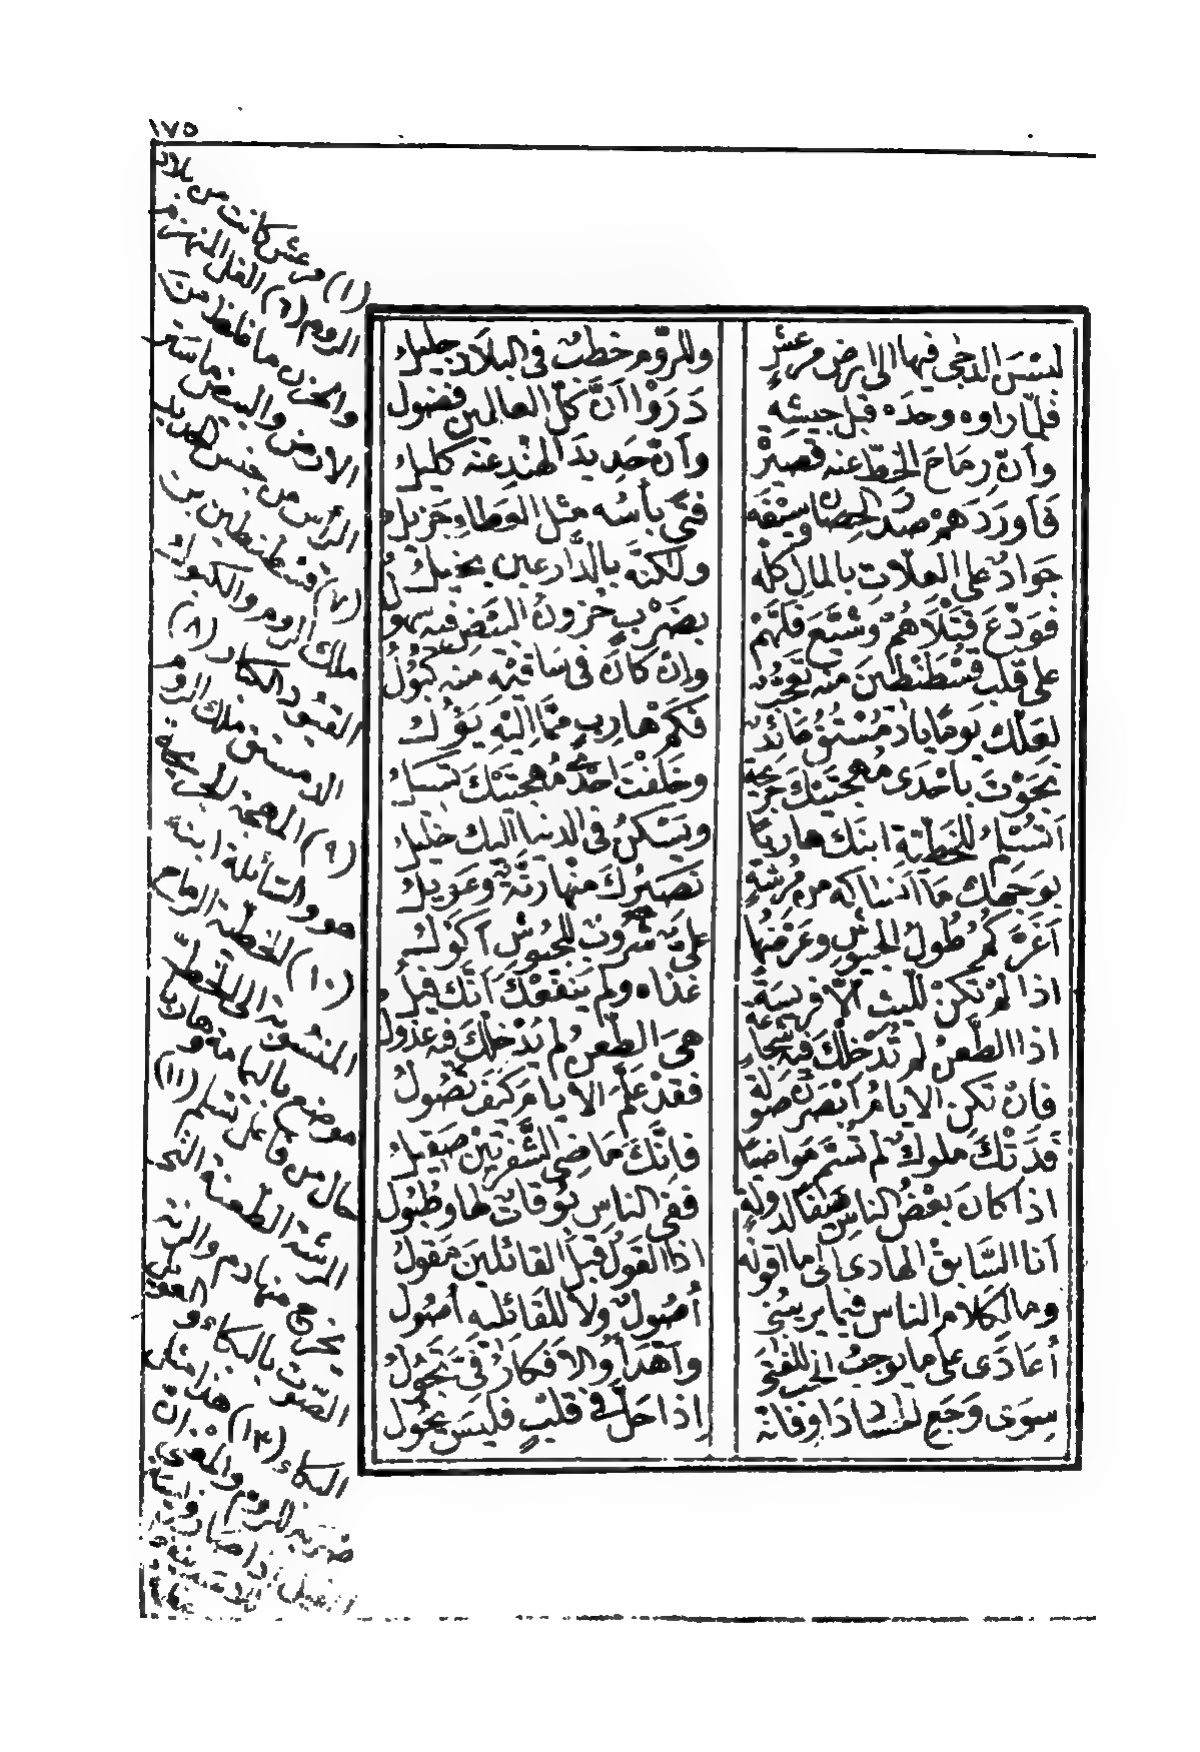 ١٧٥
لبسن الدجى فيها الى ارض مرعش وللروم خطب فى البلاد جليل
فلما راوه وحده قبل جيشه دروا ان كل العالمين فضول
وان رماح الخط عنه قصيرة وان حديد الهند عنه كليل
فاوردهم صدر الحصان وسيفه فتى بأسه مثل العطاء جزيل
جواد على العلات بالمال كله ولكنه بالدارعين بخيل
فودع قتلاهم وشيع فلهم بضرب حزون البيض فيه سهول
على قلب قسطنطين منه تعجب وان كان فى ساقيه منه كبول
لعلك يوما يا دمستق عائد فكم هارب مما اليه يؤل
نجوت باحدى مهجتيك جريحة وخلفت احدى مهجتيك تسيل
اتسلم للخطية ابنك هاربا ويسكن فى الدنيا اليك خليل
بوجهك ما انساكه من مرشة نصيرك منها رنة وعويل
اغركم طول الجيوش وعرضها على شروب للجيوش اكول
اذا لم تكن لليث الا فريسة غذاه ولم ينفعك انك فيل
اذا الطعن لم تدخلك فيه شجاعة هى الطعن لم يدخلك فيه عذول
فان تكن الايام ابصرن صولة فقد علم الايام كيف تصول
فدتك ملوك لم تسم مواضيا فانك ماضى الشفرتين صقيل
اذا كان بعض الناس سيفا لدولة ففى الناس بوقات لها وطبول
انا السابق الهادى الى ما اقوله اذا القول قبل القائلين مقول
وما لكلام الناس فيما يريبنى اصول ولا للقائليه اصول
أعادى على ما يوجب الحب للفتى واهدأ والافكار فى تجول
سوى وجع الحساد داو فانه اذا حل فى قلب فليس يحول
(١) مرعش كانت من بلاد
الروم (٦) الفل المنهزم
والحزن ما غلظ من
الارض والبيض ما ستر
الرأس من جنس الحديد
(٧) قسطنطين بن
ملك الروم والكبول
القيود الكبار (٨)
الدمستق ملك الروم
(٩) المهجة الجريحة
هو والسائلة ابنه
(١٠) الخطية الرماح
المنسوبة الى الخط
موضع باليمامة وهاربا
حال من فاعل تسلم (١١)
المرشة الطعنة التى
يخرج منها دم والرنة
الصوت بالبكاء و
البكاء (١٣) هذا مثل